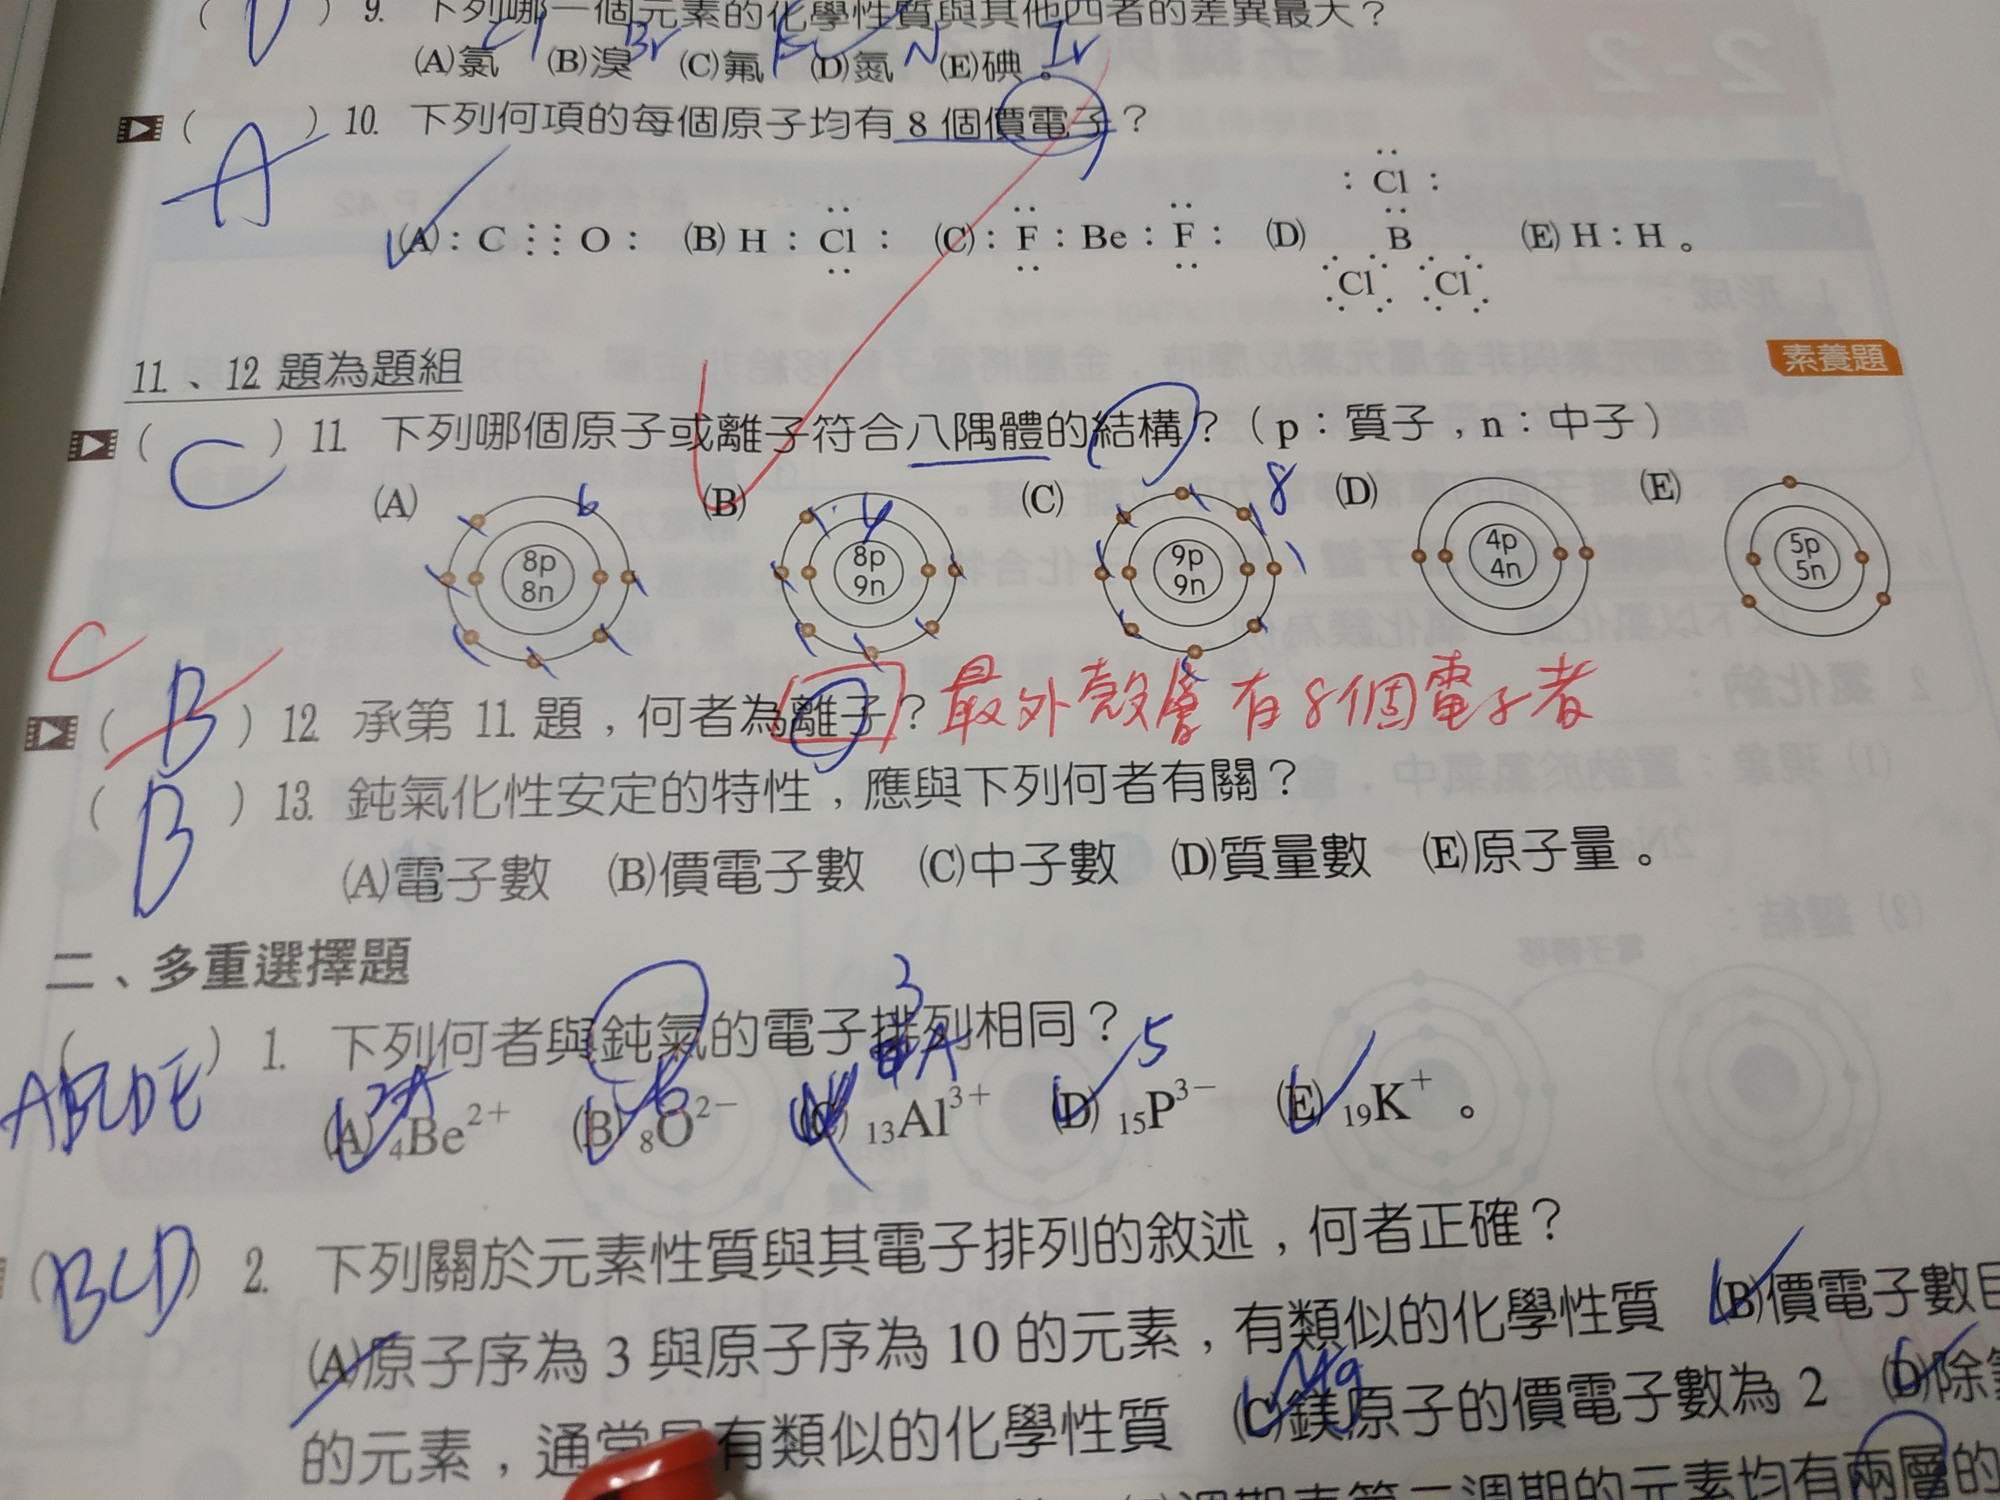 ( ) 9. 下列哪一個元素的化學性質與其他四者的差異最大？
Cl Br N
(A)氯 (B)溴 (C)氟 (D)氮 (E)碘。
( A ) 10. 下列何項的每個原子均有 8 個價電子？
(A) :C⋮⋮O: (B) H:Cl: (C) :F:Be:F: (D) :Cl: B Cl Cl (E) H:H。
11.、12. 題為題組
素養題
( C ) 11. 下列哪個原子或離子符合八隅體的結構？（p：質子，n：中子）
(A) 6 (B) (C) 8 (D) (E)
8p 8n
8p 9n
9p 9n
4p 4n
5p 5n
C
( B ) 12. 承第 11. 題，何者為離子？ 最外殼層有8個電子者
( B ) 13. 鈍氣化性安定的特性，應與下列何者有關？
(A)電子數 (B)價電子數 (C)中子數 (D)質量數 (E)原子量。
二、多重選擇題
( ABCDE ) 1. 下列何者與鈍氣的電子排列相同？
2A 6 3A 5
(A) ₄Be²⁺ (B) ₈O²⁻ (C) ₁₃Al³⁺ (D) ₁₅P³⁻ (E) ₁₉K⁺。
( BCD ) 2. 下列關於元素性質與其電子排列的敘述，何者正確？
(A)原子序為 3 與原子序為 10 的元素，有類似的化學性質 (B)價電子數目
Mg
的元素，通常具有類似的化學性質 (C)鎂原子的價電子數為 2 (D)除
週期表第二週期的元素均有兩層的